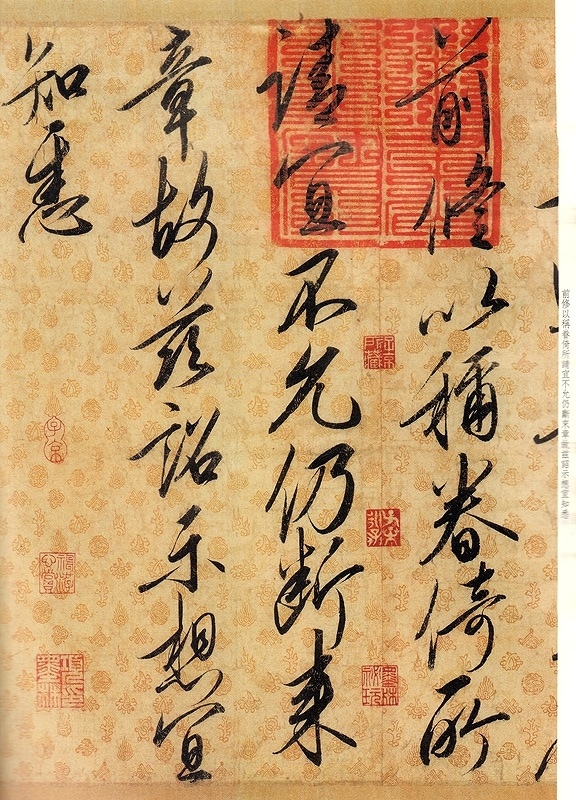 前修以稱眷倚所
請宜不允仍斷來
章故茲詔示想宜
知悉
前修以稱眷倚所請宜不允仍斷來章故茲詔示想宜知悉